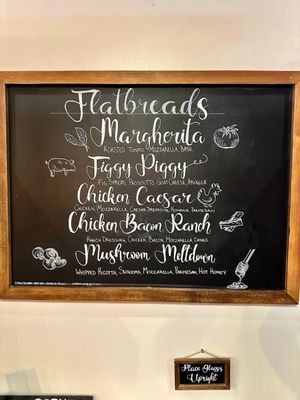 Flatbreads
Margherita
Roasted Tomato, Mozzarella, Basil
Figgy Piggy
Fig Spread, Prosciutto, Goat Cheese, Arugula
Chicken Caesar
Chicken, Mozzarella, Caesar Dressing, Romaine, Parmesan
Chicken Bacon Ranch
Ranch Dressing, Chicken, Bacon, Mozzarella, Chives
Mushroom Meltdown
Whipped Ricotta, Shrooms, Mozzarella, Parmesan, Hot Honey
Place Glasses
Upright